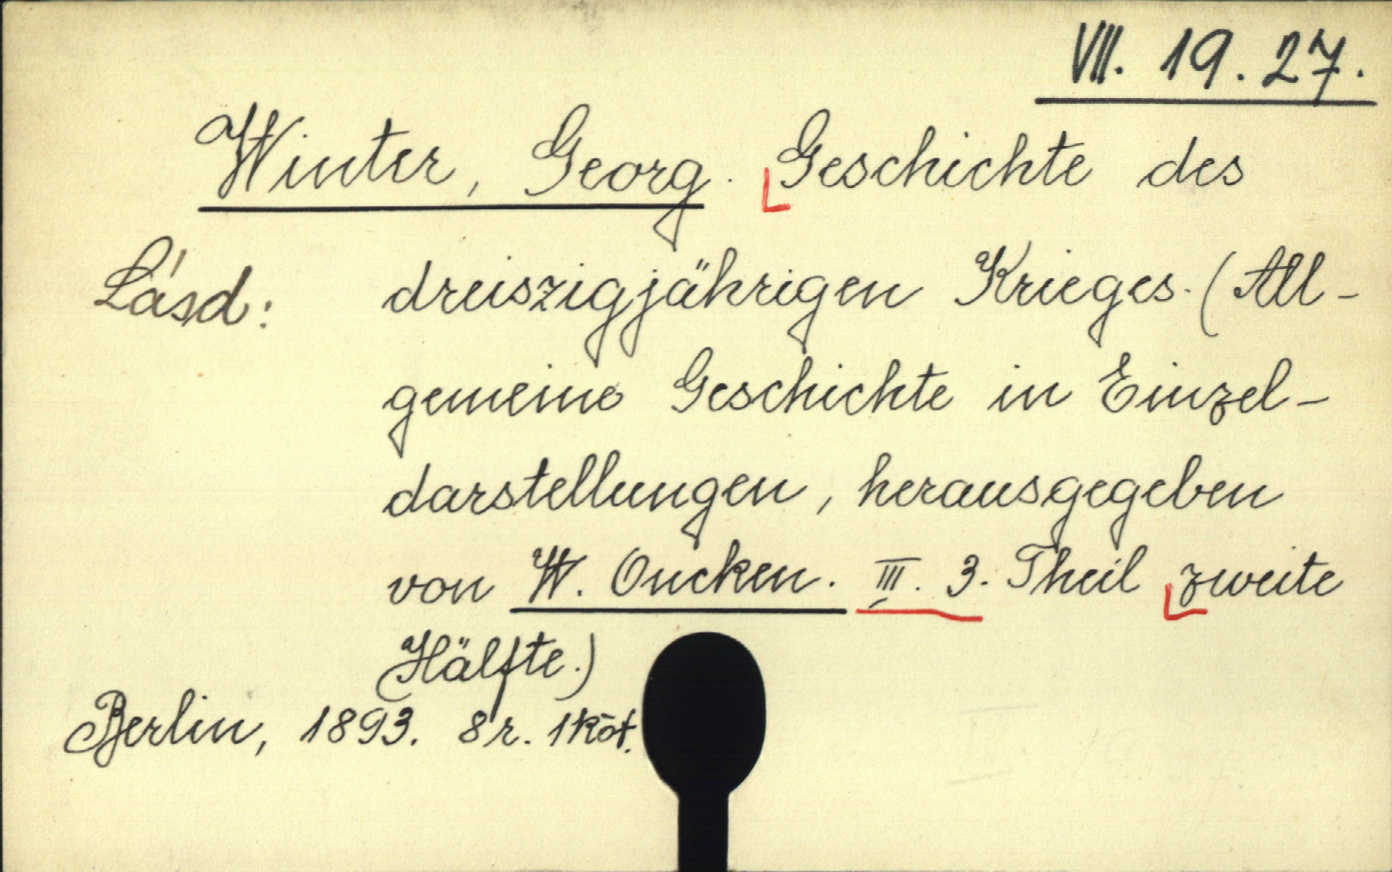 VII. 19. 27.
Winter, Georg. Geschichte des
Lásd: dreiszigjährigen Krieges. (All-
gemeine Geschichte in Einzel-
darstellungen, herausgegeben
von W. Oncken. III. 3. Theil zweite
Hälfte.)
Berlin, 1893. 8r. 1 köt.